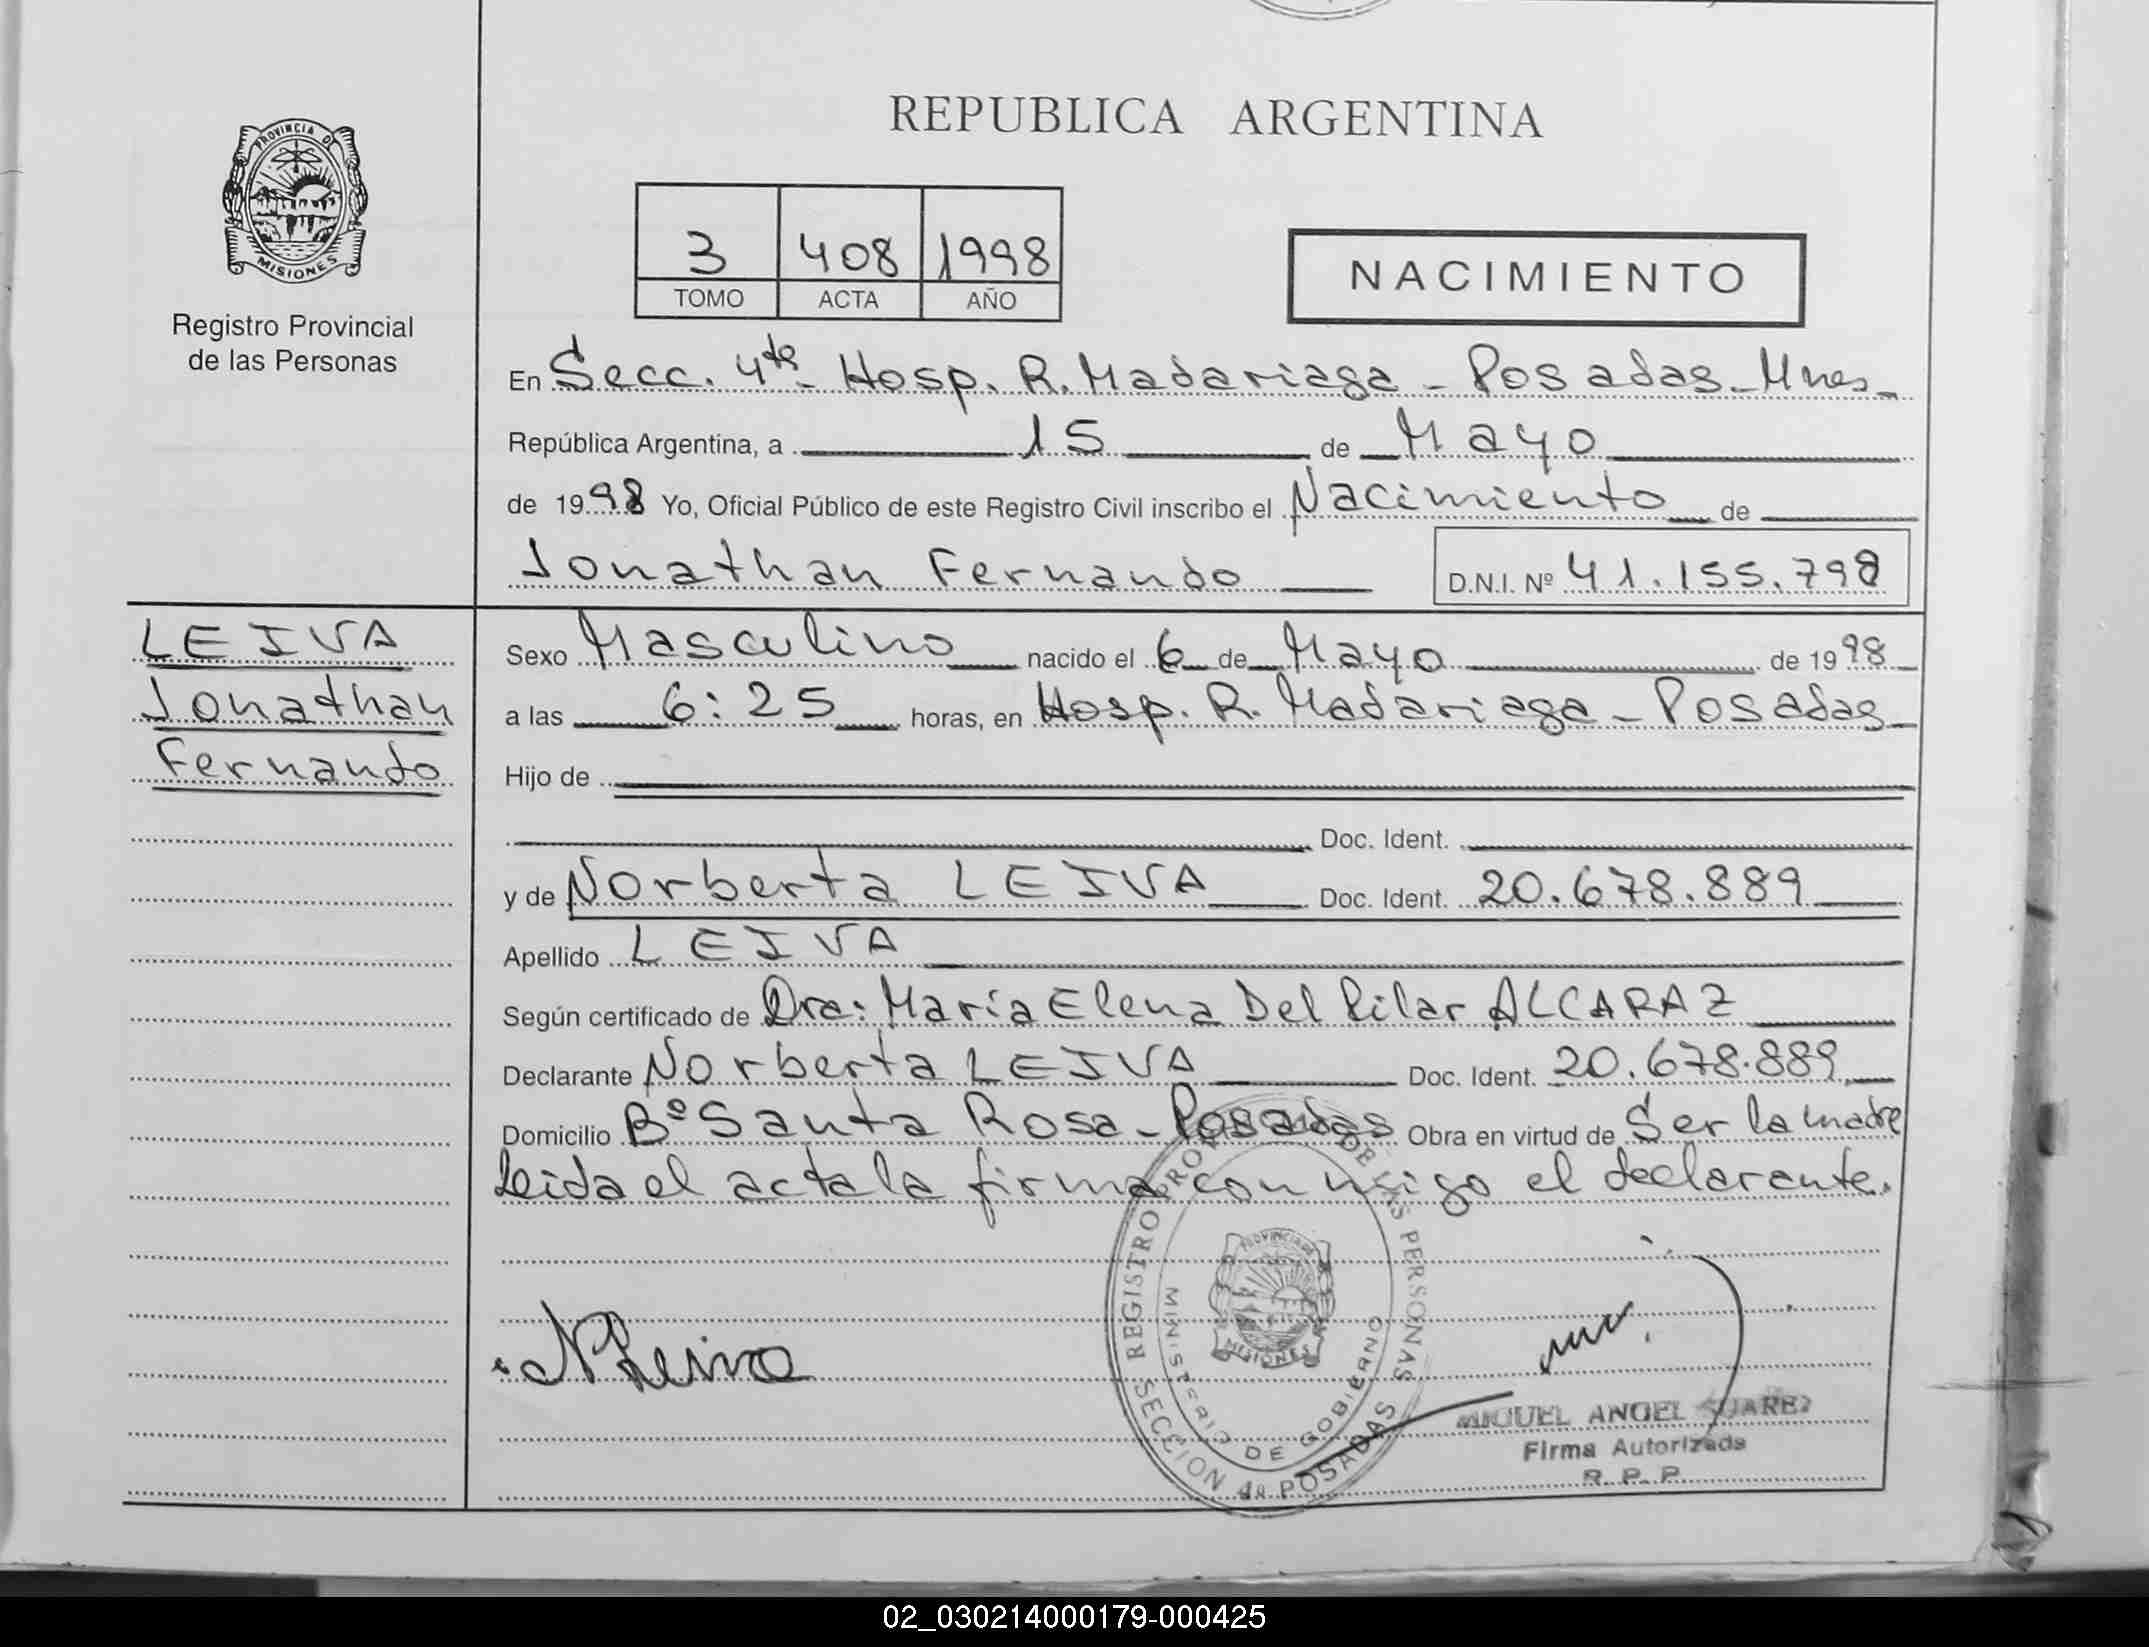 REPUBLICA ARGENTINA
PROVINCIA DE
MISIONES
Registro Provincial
de las Personas
3 408 1998
TOMO ACTA AÑO
NACIMIENTO
En Secc. 4ta Hosp. R. Madariaga - Posadas - Mnes -
República Argentina, a 15 de Mayo
de 1998 Yo, Oficial Público de este Registro Civil inscribo el Nacimiento de
Jonathan Fernando D.N.I. Nº 41.155.798
LEIVA
Jonathan
Fernando
Sexo Masculino nacido el 6 de Mayo de 1998
a las 6:25 horas, en Hosp. R. Madariaga - Posadas -
Hijo de
Doc. Ident.
y de Norberta LEIVA Doc. Ident. 20.678.889
Apellido LEIVA
Según certificado de Dra: María Elena Del Pilar ALCARAZ
Declarante Norberta LEIVA Doc. Ident. 20.678.889
Domicilio Bº Santa Rosa - Posadas Obra en virtud de Ser la madre
Leida el acta la firma con migo el declarante.
REGISTRO DE LAS PERSONAS
SECCION 4a POSADAS
MINISTERIO DE GOBIERNO
PROVINCIA DE
MISIONES
N Leiva
MIGUEL ANGEL SUAREZ
Firma Autorizada
R. P. P.
02_030214000179-000425